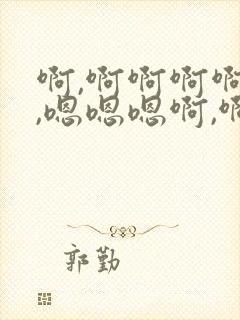 啊,啊啊啊啊
,嗯嗯嗯啊,啊
郭勤